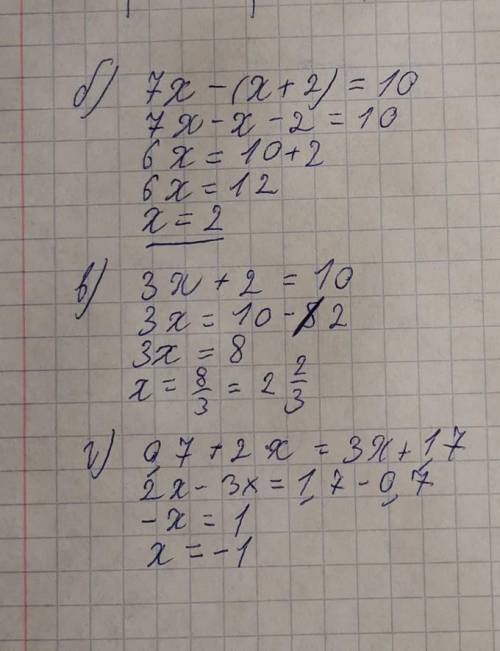 б) 7x - (x + 2) = 10
7x - x - 2 = 10
6x = 10 + 2
6x = 12
x = 2
в) 3x + 2 = 10
3x = 10 - 2
3x = 8
x = 8/3 = 2 2/3
г) 0,7 + 2x = 3x + 1,7
2x - 3x = 1,7 - 0,7
-x = 1
x = -1